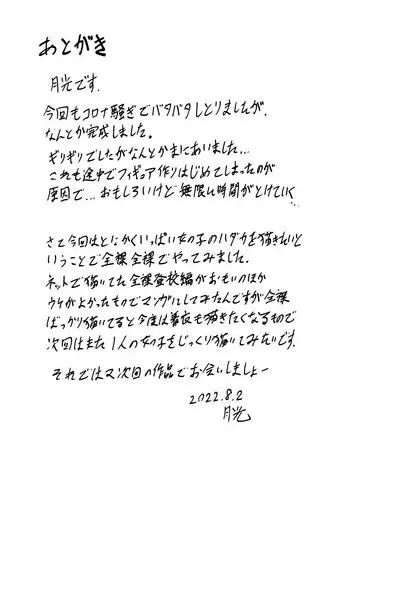 あとがき
月光です.
今回もコロナ騒ぎでバタバタしとりましたが、
なんとか完成しました。
ギリギリでしたがなんとかまにあいました...
これも途中でフィギュア作りはじめてしまったのが
原因で...おもしろいけど無限に時間がとけていく...
さて今回はとにかくいっぱい女の子のハダカを描きたいと
いうことで全裸全裸でやってみました。
ネットで描いてた全裸登校編がおもいのほか
ウケがよかったものでマンガにしてみたんですが全裸
ばっかり描いてると今度は着衣も描きたくなるもので
次回はまた1人の女の子をじっくり描いてみたいです.
それではマ次回の作品でお会いしましょー
2022.8.2
月光